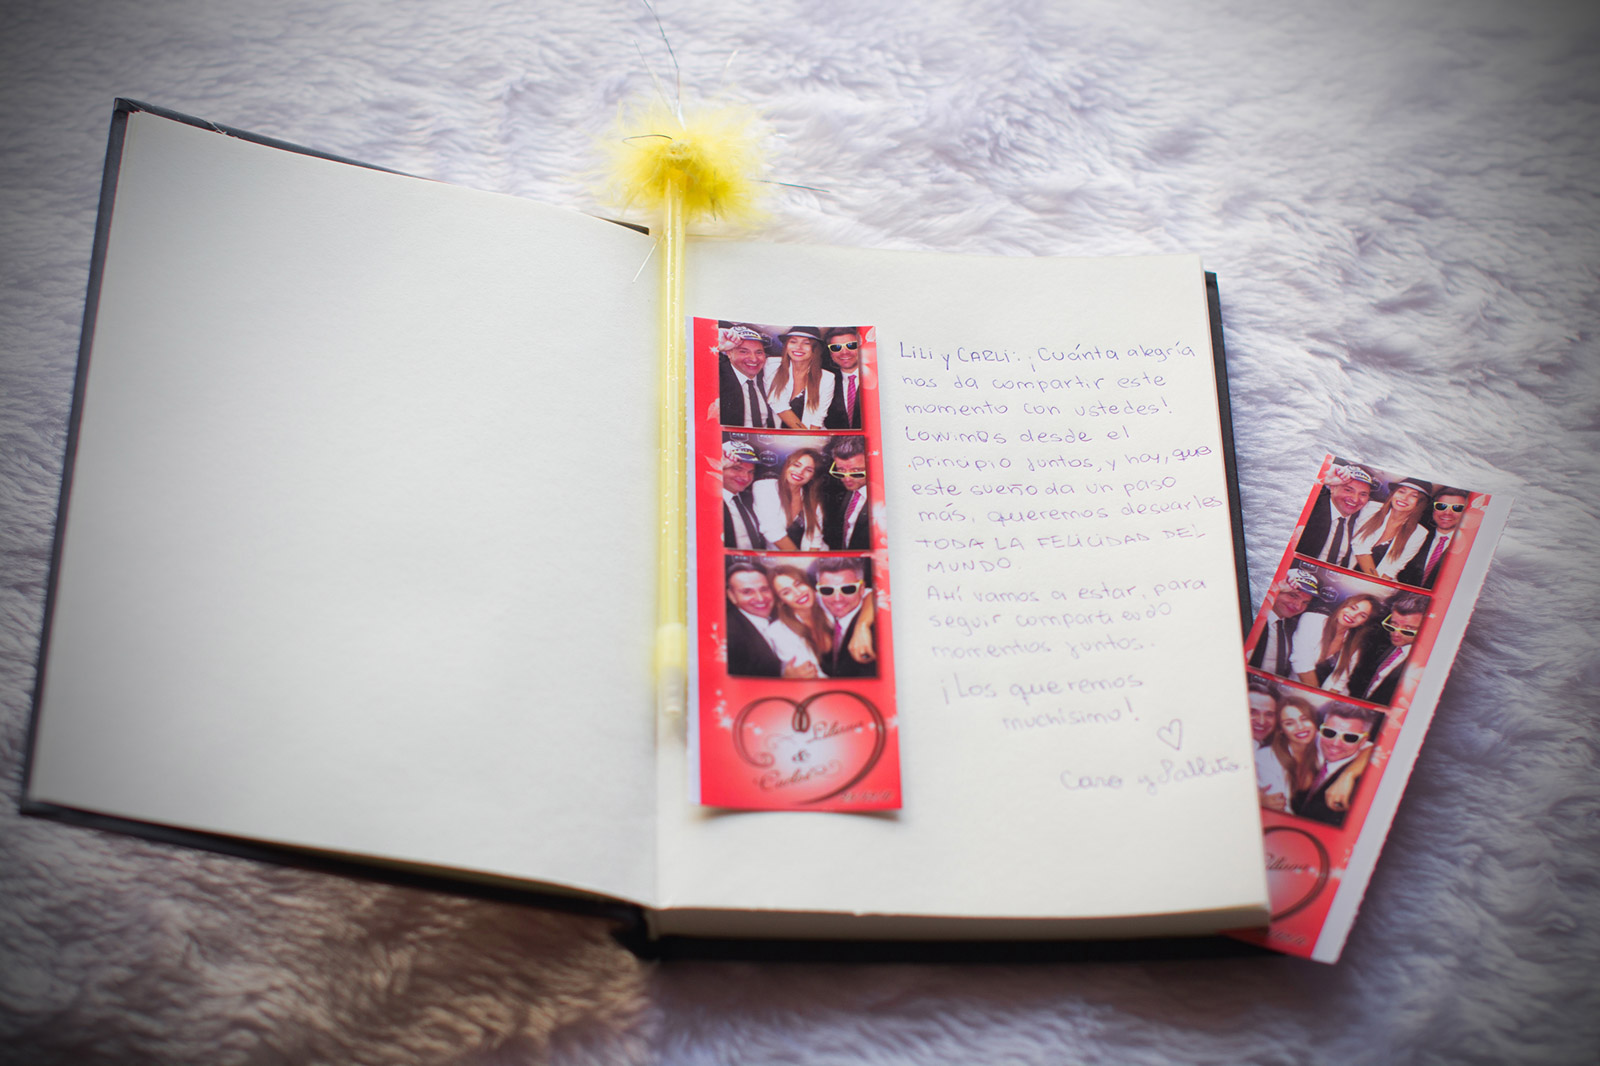 LiLi y CARLi: ¡Cuánta alegría
nos da compartir este
momento con ustedes!
Convimos desde el
principio juntos, y hoy, que
este sueño da un paso
más, queremos desearles
TODA LA FELICIDAD DEL
MUNDO.
Ahí vamos a estar, para
seguir compartiendo
momentos juntos.
¡Los queremos
muchísimo!
Caro y Pablito.
Liliana
&
Carlos
Liliana